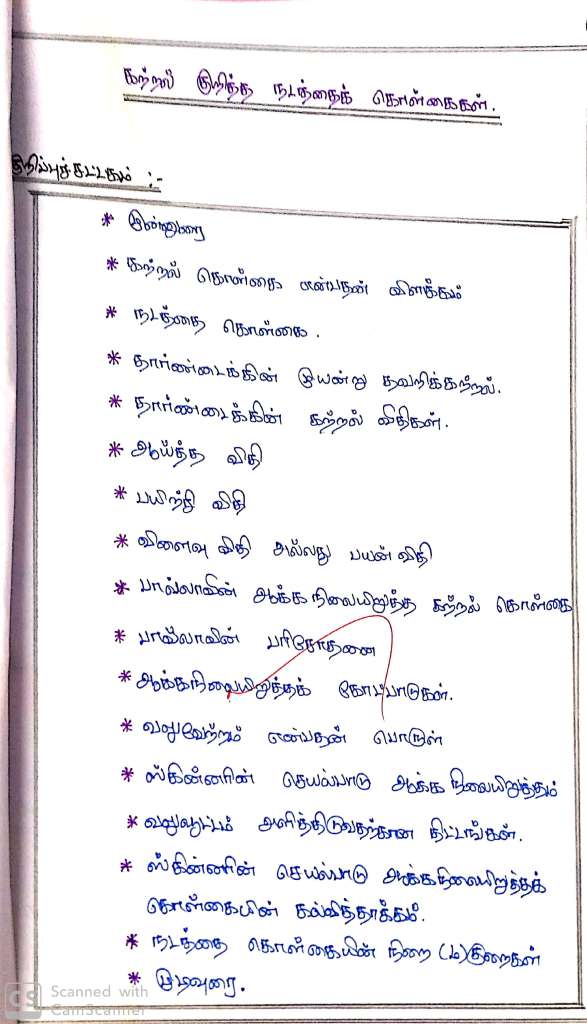 கற்றல் குறித்த நடத்தைக் கொள்கைகள்.
குறிப்புச்சட்டகம் :-
* முன்னுரை
* கற்றல் கொள்கை என்பதன் விளக்கம்
* நடத்தை கொள்கை.
* தார்ண்டைக்கின் முயன்று தவறிக்கற்றல்.
* தார்ண்டைக்கின் கற்றல் விதிகள்.
* ஆய்த்த விதி
* பயிற்சி விதி
* விளைவு விதி அல்லது பயன் விதி
* பாவ்லாவின் ஆக்க நிலையிறுத்த கற்றல் கொள்கை
* பாவ்லாவின் பரிசோதனை
* ஆக்கநிலையிறுத்தக் கோட்பாடுகள்.
* வலுவேற்றம் என்பதன் பொருள்
* ஸ்கின்னரின் செயல்பாடு ஆக்க நிலையிறுத்தம்
* வலுவூட்டம் அளித்திடுவதற்கான திட்டங்கள்.
* ஸ்கின்னரின் செயல்பாடு ஆக்கநிலையிறுத்தக்
கொள்கையின் கல்வித்தாக்கம்.
* நடத்தை கொள்கையின் நிறை (ம) குறைகள்
* முடிவுரை.
CS Scanned with
CamScanner